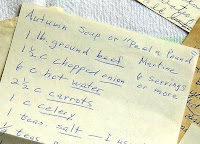 Autumn Soup or "Peel a Pound
1 lb ground beef
1 ½ c chopped onion
6 c hot water
2 ½ c carrots
1 c celery
1 teas. salt — I use
6 servings
or more